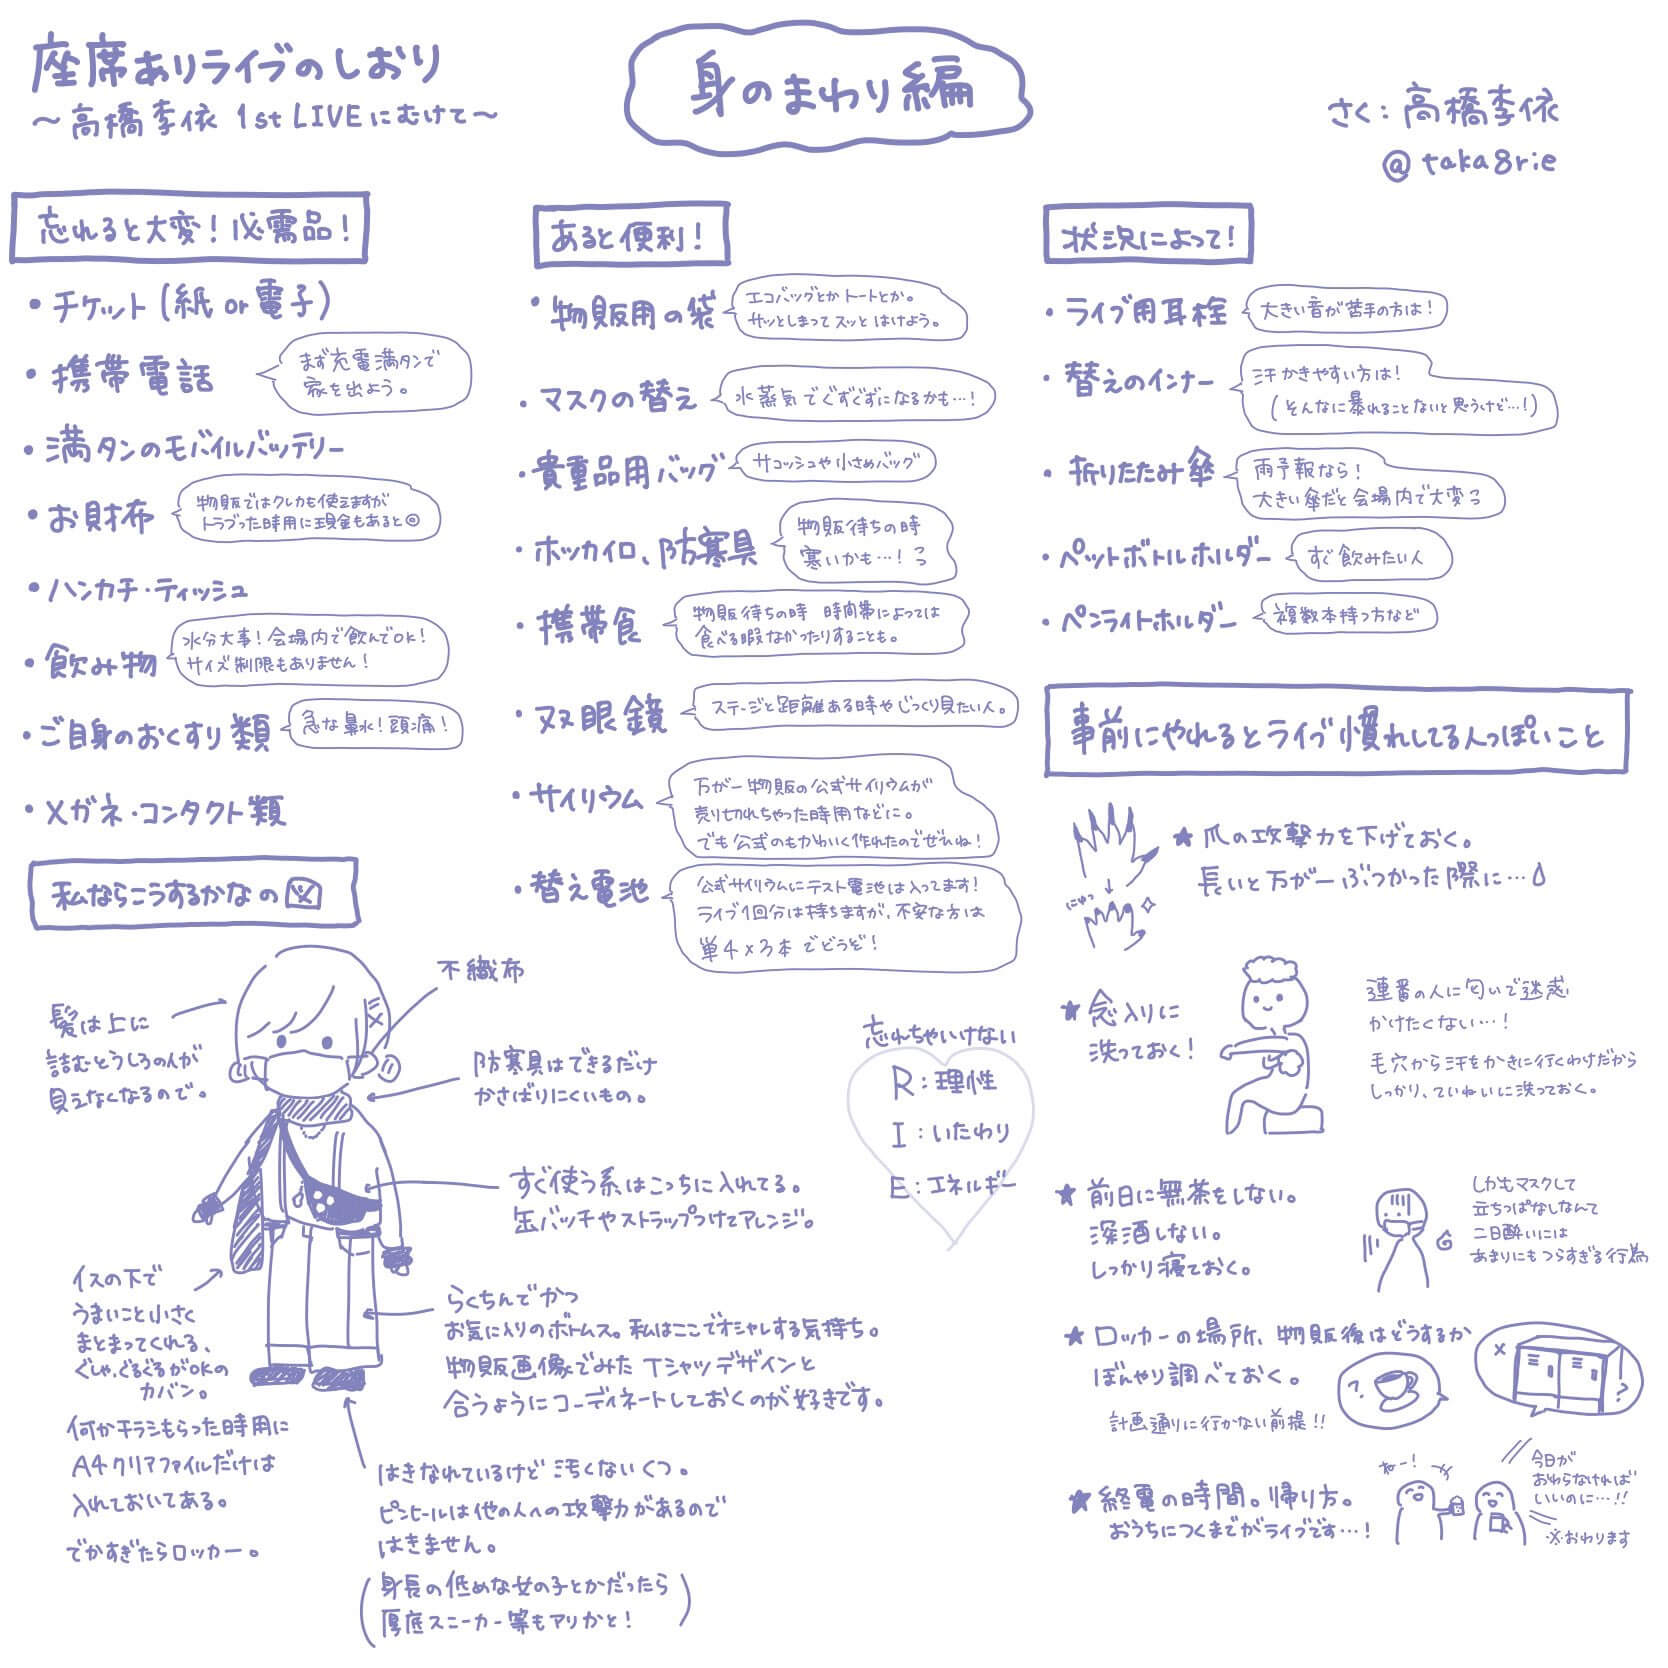 座席ありライブのしおり
～高橋李依 1st LIVEにむけて～
身のまわり編
さく：高橋李依
@taka8rie
忘れると大変！必需品！
・チケット（紙or電子）
・携帯電話
まず充電満タンで
家を出よう。
・満タンのモバイルバッテリー
・お財布
物販ではクレカも使えますが
トラブった時用に現金もあると◎
・ハンカチ・ティッシュ
・飲み物
水分大事！会場内で飲んでOK！
サイズ制限もありません！
・ご自身のおくすり類
急な鼻水！頭痛！
・メガネ・コンタクト類
あると便利！
・物販用の袋
エコバッグとかトートとか。
サッとしまってスッとはけよう。
・マスクの替え
水蒸気でぐずぐずになるかも…！
・貴重品用バッグ
サコッシュや小さめバッグ
・ホッカイロ、防寒具
物販待ちの時
寒いかも…！っ
・携帯食
物販待ちの時 時間帯によっては
食べる暇なかったりすることも。
・双眼鏡
ステージと距離ある時やじっくり見たい人。
・サイリウム
万が一物販の公式サイリウムが
売り切れちゃった時用などに。
でも公式のもかわいく作れたのでぜひね！
・替え電池
公式サイリウムにテスト電池は入ってます！
ライブ1回分は持ちますが、不安な方は
単4×3本でどうぞ！
状況によって！
・ライブ用耳栓
大きい音が苦手の方は！
・替えのインナー
汗かきやすい方は！
（そんなに暴れることないと思うけど…！）
・折りたたみ傘
雨予報なら！
大きい傘だと会場内で大変っ
・ペットボトルホルダー
すぐ飲みたい人
・ペンライトホルダー
複数本持つ方など
私ならこうするかなの図
不織布
髪は上に
詰むとうしろの人が
見えなくなるので。
防寒具はできるだけ
かさばりにくいもの。
すぐ使う系はこっちに入れてる。
缶バッチやストラップつけてアレンジ。
イスの下で
うまいこと小さく
まとまってくれる、
ぐしゃぐるぐるがOKの
カバン。
何かチラシもらった時用に
A4クリアファイルだけは
入れておいてある。
でかすぎたらロッカー。
らくちんでかつ
お気に入りのボトムス。私はここでオシャレする気持ち。
物販画像でみたTシャツデザインと
合うようにコーディネートしておくのが好きです。
はきなれているけど汚くないくつ。
ピンヒールは他の人への攻撃力があるので
はきません。
（身長の低めな女の子とかだったら
厚底スニーカー等もアリかと！）
忘れちゃいけない
R：理性
I：いたわり
E：エネルギー
事前にやれるとライブ慣れしてる人っぽいこと
★爪の攻撃力を下げておく。
長いと万が一ぶつかった際に…
にゃっ
★念入りに
洗っておく！
連番の人に匂いで迷惑
かけたくない…！
毛穴から汗をかきに行くわけだから
しっかり、ていねいに洗っておく。
★前日に無茶をしない。
深酒しない。
しっかり寝ておく。
しかもマスクして
立ちっぱなしなんて
二日酔いには
あまりにもつらすぎる行為
★ロッカーの場所、物販後はどうするか
ぼんやり調べておく。
計画通りに行かない前提!!
?
×
?
★終電の時間。帰り方。
おうちにつくまでがライブです…！
ねー！
今日が
おわらなければ
いいのに…!!
※おわります